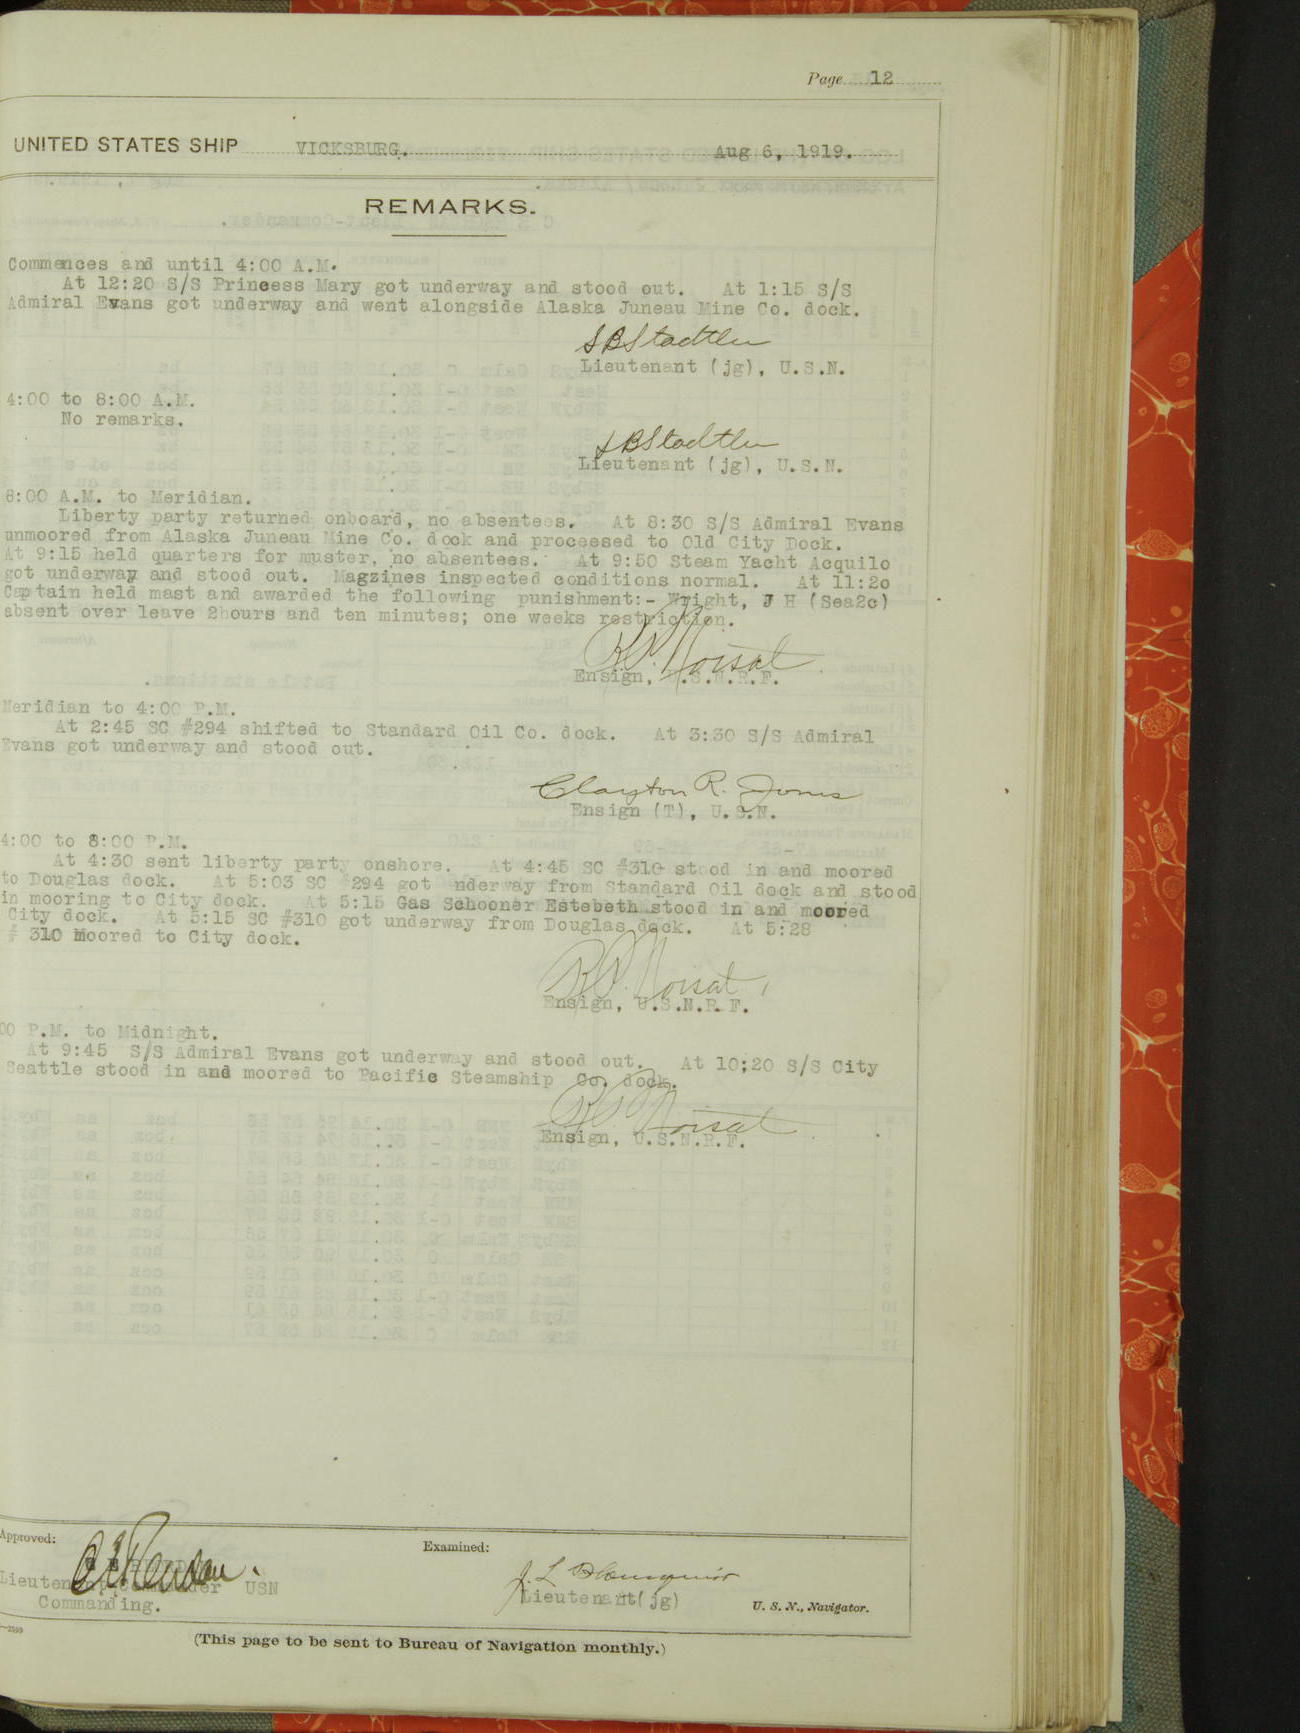 Page 12
UNITED STATES SHIP VICKSBURG. Aug 6, 1919.
REMARKS.
Commences and until 4:00 A.M.
At 12:20 S/S Princess Mary got underway and stood out. At 1:15 S/S
Admiral Evans got underway and went alongside Alaska Juneau Mine Co. dock.
S B Stadtler
Lieutenant (jg), U.S.N.
4:00 to 8:00 A.M.
No remarks.
S B Stadtler
Lieutenant (jg), U.S.N.
8:00 A.M. to Meridian.
Liberty party returned onboard, no absentees. At 8:30 S/S Admiral Evans
unmoored from Alaska Juneau Mine Co. dock and proceesed to Old City Dock.
At 9:15 held quarters for muster, no absentees. At 9:50 Steam Yacht Acquilo
got underway and stood out. Magzines inspected conditions normal. At 11:20
Captain held mast and awarded the following punishment:- Wright, J H (Sea2c)
absent over leave 2hours and ten minutes; one weeks restriction.
Ensign, U.S.N.R.F.
Meridian to 4:00 P.M.
At 2:45 SC #294 shifted to Standard Oil Co. dock. At 3:30 S/S Admiral
Evans got underway and stood out.
Clayton R. Jones
Ensign (T), U.S.N.
4:00 to 8:00 P.M.
At 4:30 sent liberty party onshore. At 4:45 SC #310 stood in and moored
to Douglas dock. At 5:03 SC #294 got nderway from Standard Oil dock and stood
in mooring to City dock. At 5:15 Gas Schooner Estebeth stood in and moored
City dock. At 5:15 SC #310 got underway from Douglas dock. At 5:28
# 310 Moored to City dock.
Ensign, U.S.N.R.F.
00 P.M. to Midnight.
At 9:45 S/S Admiral Evans got underway and stood out. At 10;20 S/S City
Seattle stood in and moored to Pacific Steamship Co. dock.
Ensign, U.S.N.R.F.
Approved:
Examined:
Lieutenant Commander USN
Commanding.
Lieutenant(jg) U. S. N., Navigator.
(This page to be sent to Bureau of Navigation monthly.)